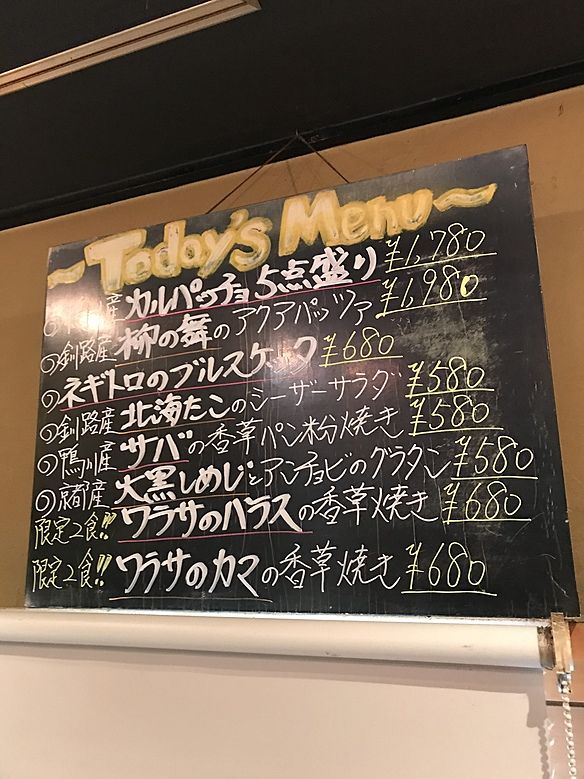 ~Today's Menu~
産 カルパッチョ5点盛り ¥1,780
釧路産 柳の舞のアクアパッツァ ¥1,980
ネギトロのブルスケッタ ¥680
釧路産 北海たこのシーザーサラダ ¥580
鴨川産 サバの香草パン粉焼き ¥580
京都産 大黒しめじとアンチョビのグラタン ¥580
限定2食!! ワラサのハラスの香草焼き ¥680
限定2食!! ワラサのカマの香草焼き ¥680